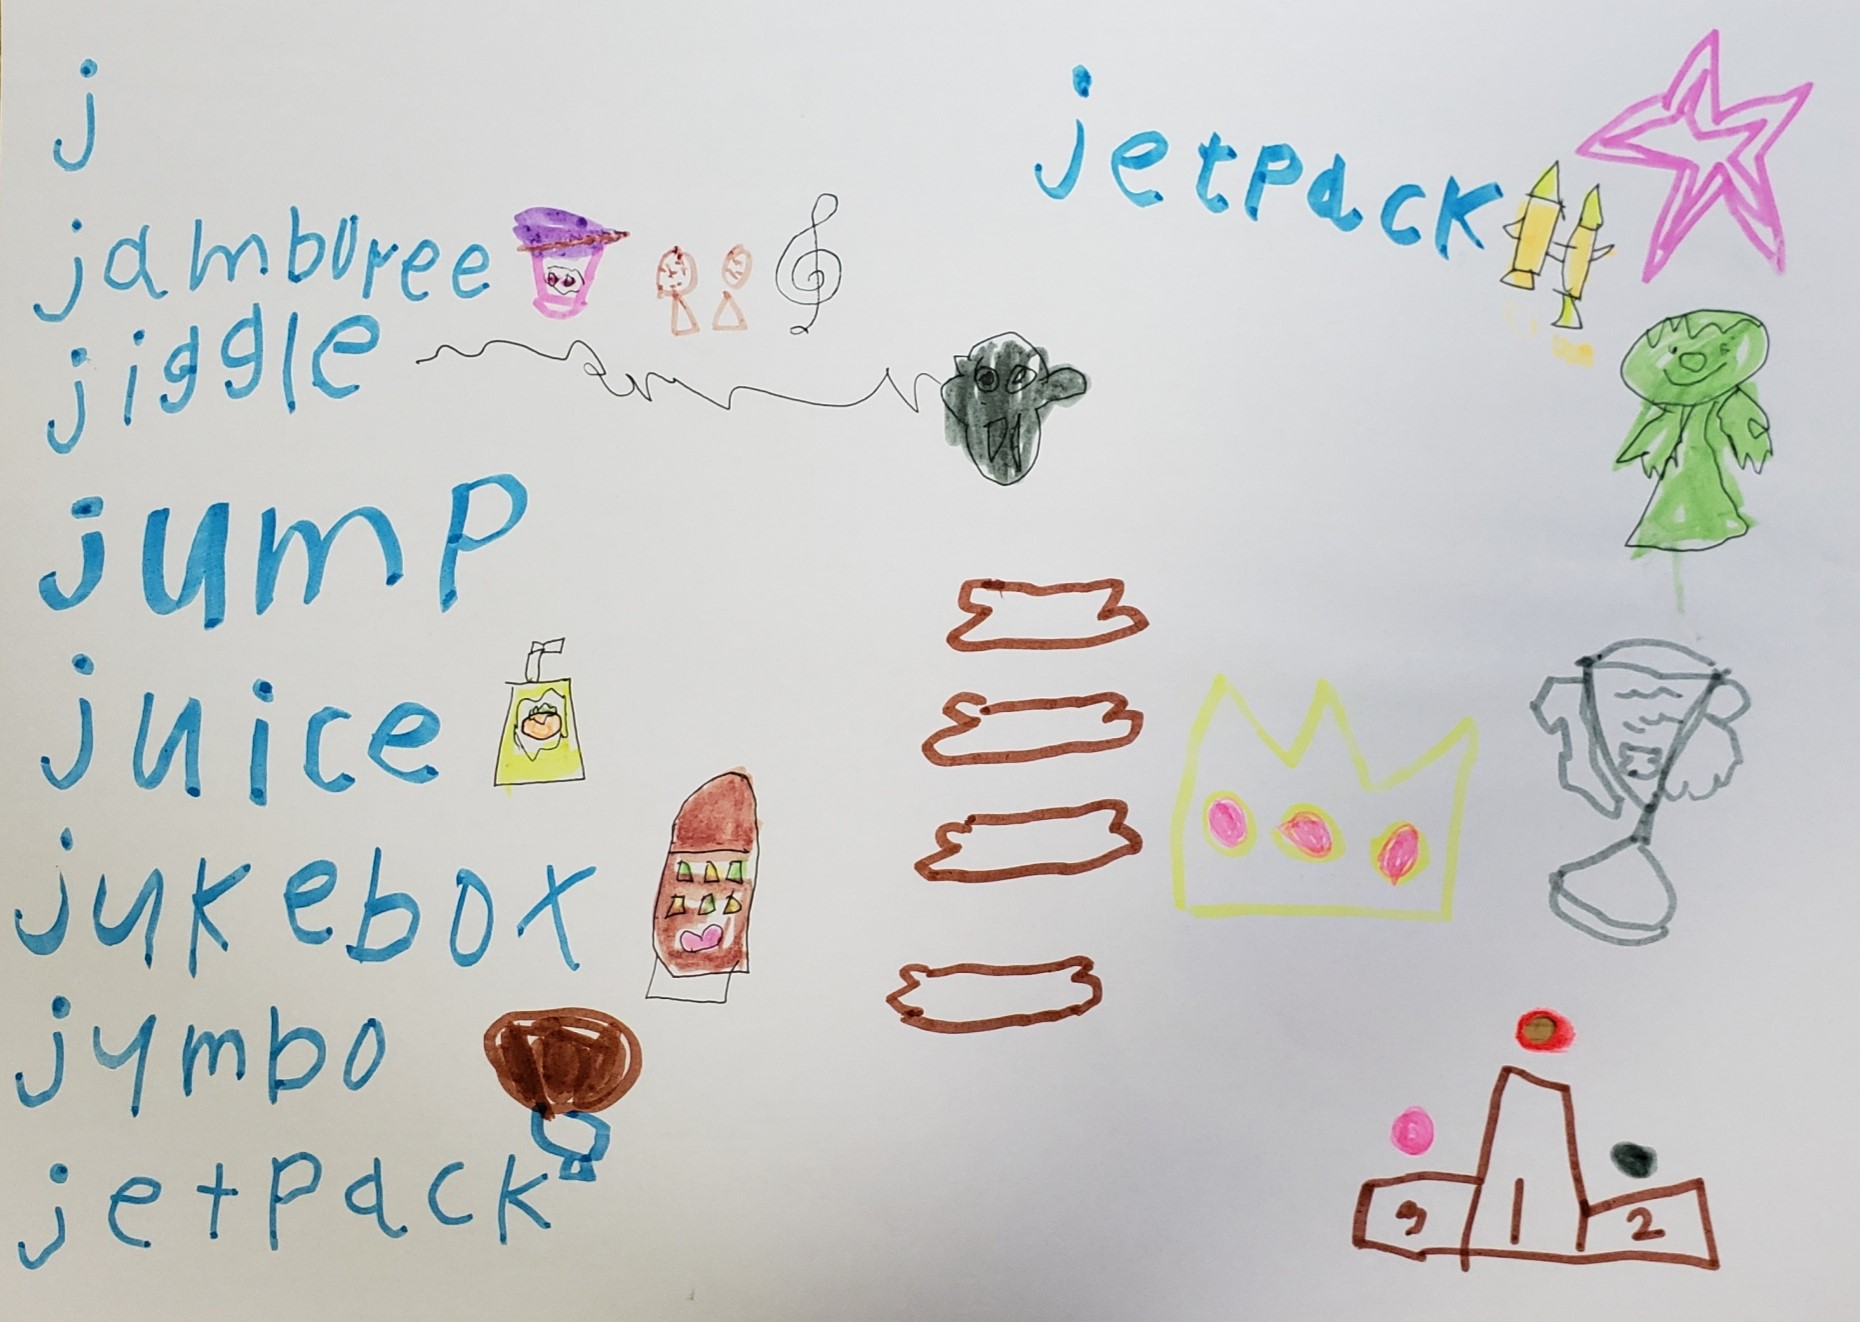 j
jamboree
jiggle
jump
juice
jukebox
jumbo
jetpack
jetpack
3 1 2